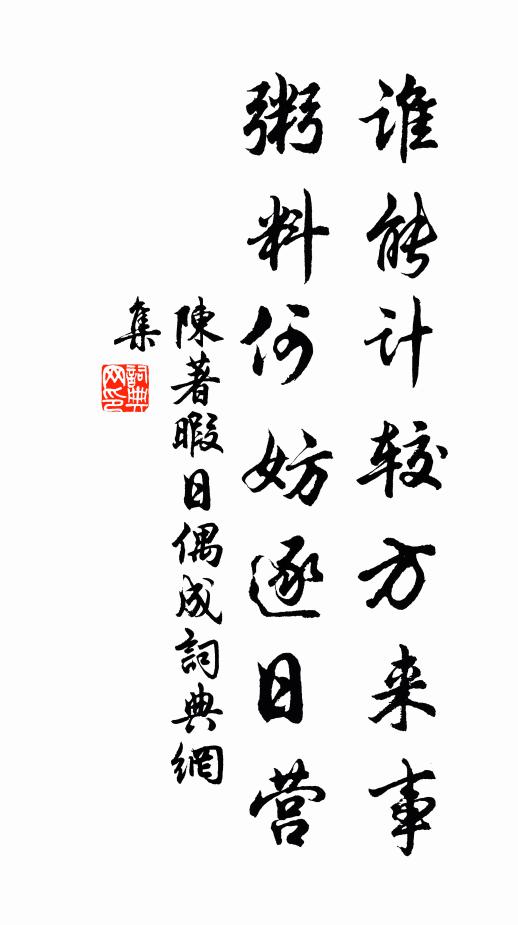 谁能计较方来事
粥料何妨逐日营
陳著暇日偶成詞典網
集
詞典
网印